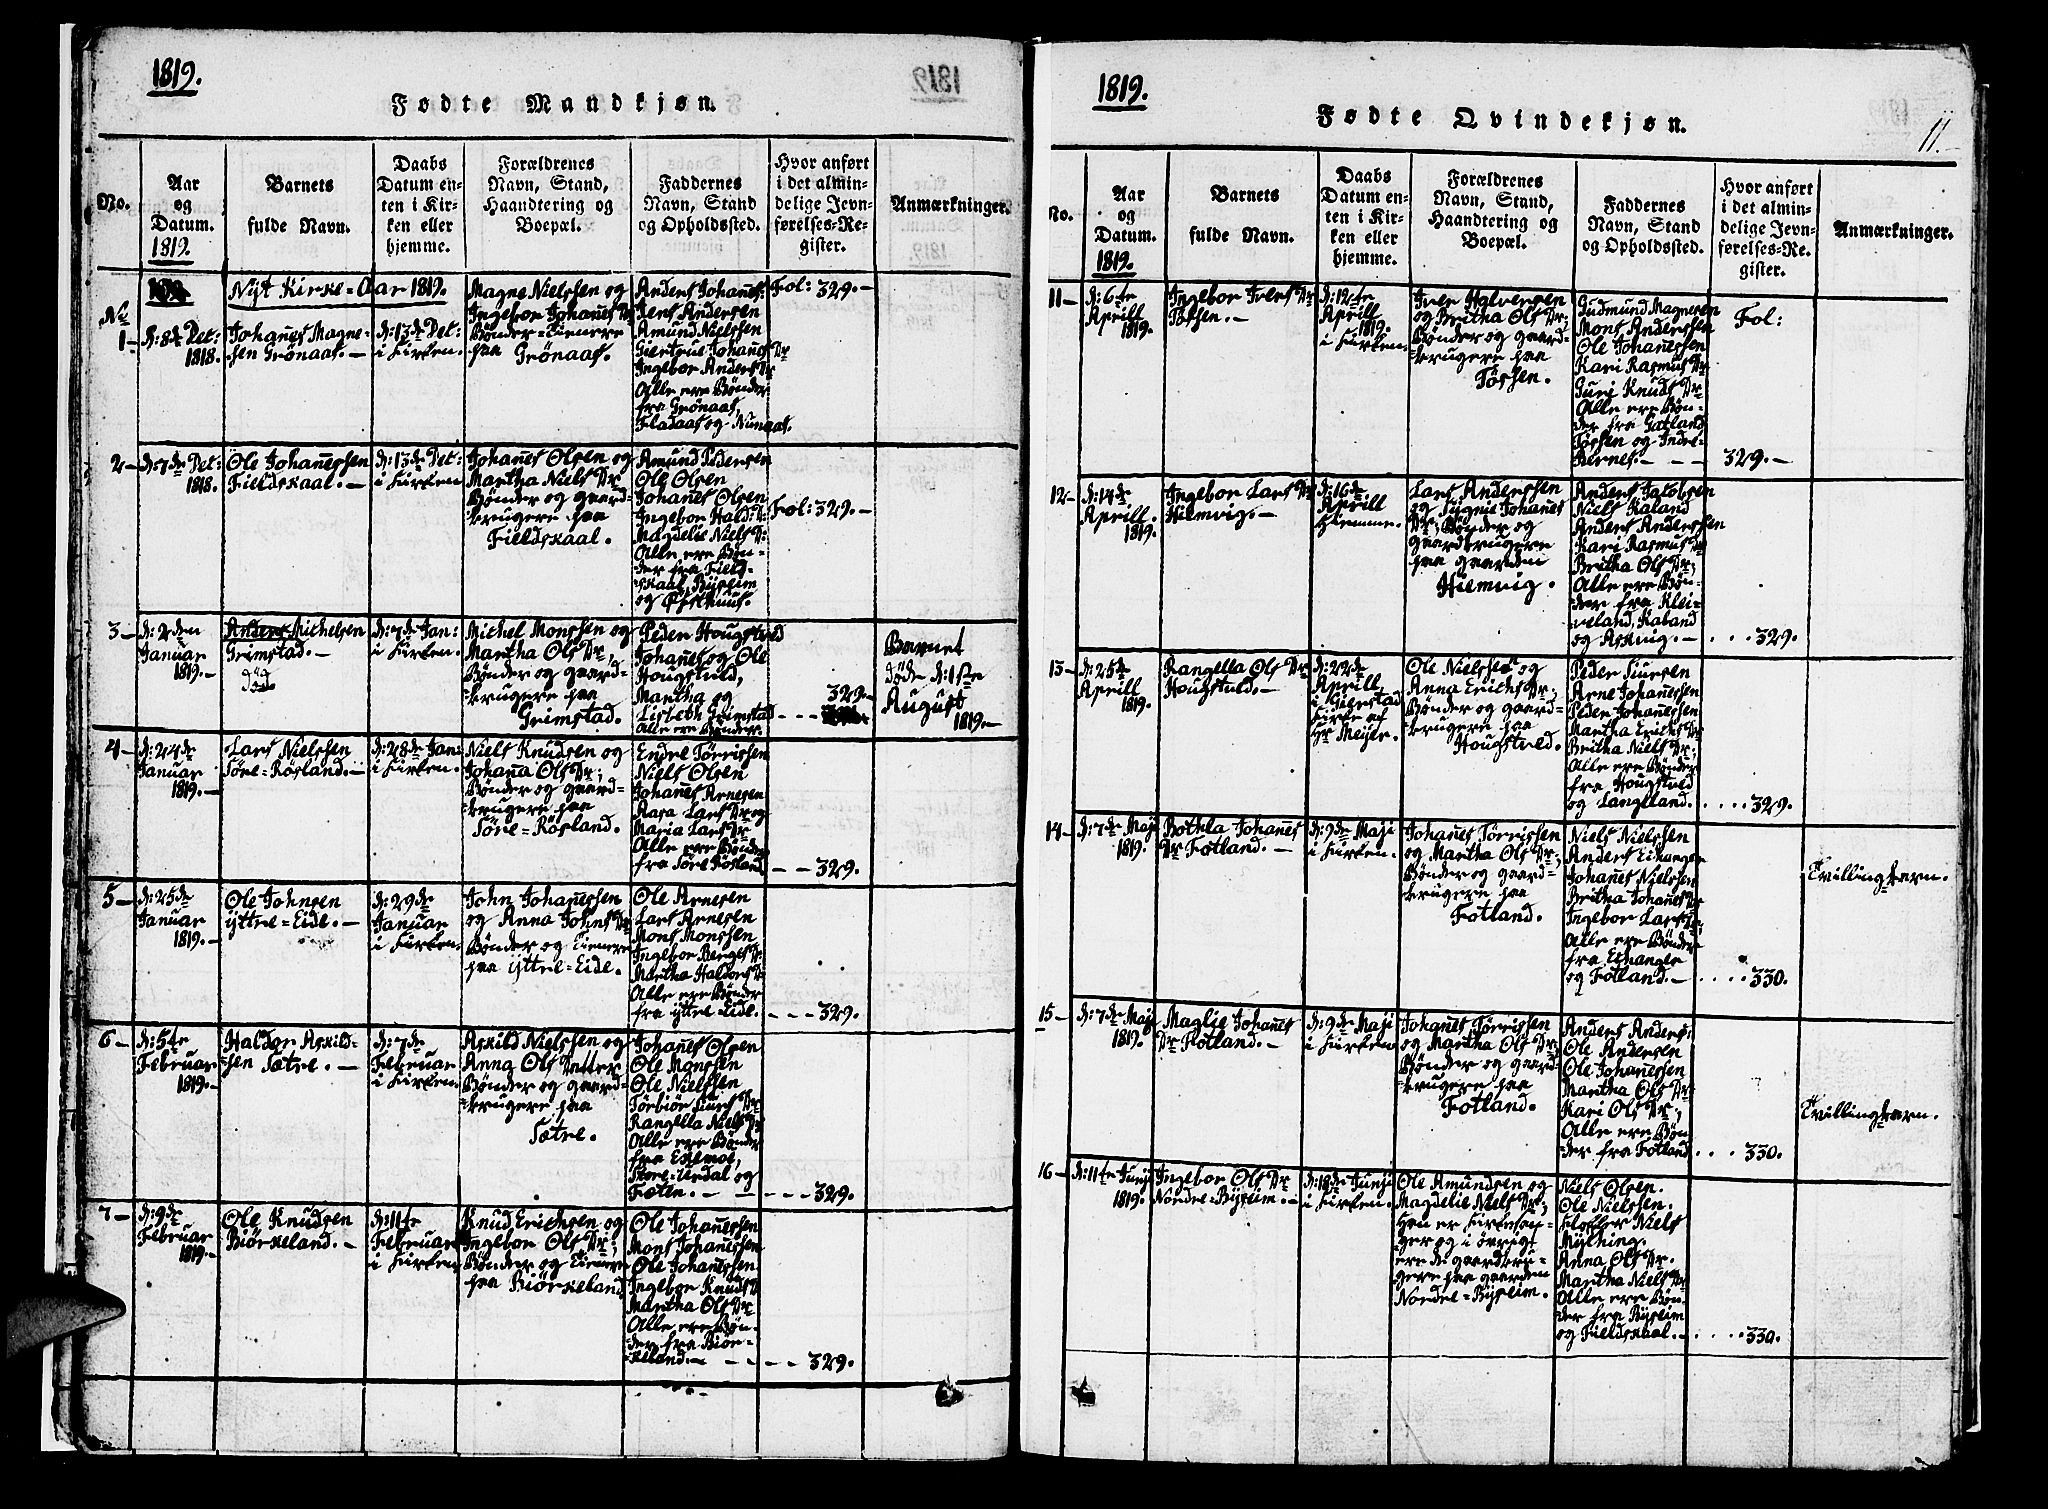 1819.
Fødte Mandkjøn.
No.
Aar
og
Datum.
1819.
Barnets
fulde Navn.
Daabs
Datum en-
ten i Kir-
ken eller
hjemme.
Forældrenes
Navn, Stand,
Haandtering og
Boepæl.
Faddernes
Navn, Stand
og Opholdssted.
Hvor anført
i det almin-
delige Jevn-
førelses-Re-
gister.
Anmærkninger.
Nÿt Kirke=Aar 1819.
No
1-
d: 8de Det:
1818.
Johanes Magne-
sen Grönaas.-
d: 13de Det:
i Kirken.
Magne Nielssen og
Ingebor Johanes Dr
Bönder=Tienere
paa
Grönaas.
Anders Johanes:
Jens Andersen
Amund Nielssen
Giertrue Johanes Dr
Ingebor Anders Dr
Alle ere Bönder
fra Grönaas,
Fladaas og Nunaas.
Fol: 329.-
2-
d: 7de Det:
1818.
Ole Johanessen
Fieldskaal.-
d: 13de Det:
i Kirken
Johanes Olsen og
Martha Niels Dr
Bönder og gaard-
brugere paa
Fieldskaal.
Amund Pedersen
Ole Olsen
Johanes Olsen
Ingebor Hald: D:
Magdelie Niels D:
Alle ere Bön-
der fra Field-
skaal, Bÿseim
og
Fol: 329.-
3-
d: 2den
Januar
1819.-
Anders Michelsen
Grimstad.-
död
d: 7de Jan:
i Kirken.
Michel Monssen og
Martha Ols Dr,
Bönder og gaard-
brugere paa
Grimstad.
Peder Hougstved
Johanes og Ole
Hougstved,
Martha og
Lisbeth Grimstad
Alle ere Bönder.
329.-
Barnet
döde d: 1ste
August
1819.-
4-
d: 24de
Januar
1819.-
Lars Nielssen
Söre=Rösland.-
d: 28de Jan:
i Kirken.
Niels Knudsen og
Johana Ols Dr;
Bönder og gaard-
brugere paa
Söre=Rösland.
Endre Törrissen
Niels Olsen
Johanes Arnesen
Aasa Lars Dr og
Maria Lars Dr
Alle ere Bönder
fra Söre Rösland
- - 329.
5-
d: 25de
Januar
1819.-
Ole Johnsen
ÿttre=Eide.-
d: 29de
Januar
i Kirken.
John Johanessen
og Anna Johns Dr
Bönder og Tienere
paa ÿttre=Eide.
Ole Arnesen
Lars Arnesen
Mons Monssen
Ingebor Berges Dr
Martha Haldors Dr
Alle ere Bönder
fra ÿttre Eide.
- - - 329.
6-
d: 5te
Februar
1819.-
Haldor Askild-
sen Sætre.-
d: 7de
Februar
i Kirken.
Askild Nielssen og
Anna Ols Datter
Bönder og gaard-
brugere paa
Sætre.
Johanes Olsen
Ole Monssen
Ole Nielssen
Törbiör Siurs Dr
Rangella Niels Dr
Alle ere Bönder
fra
og
Sæten.-
- - - 329.
7-
d: 9de
Februar
1819.-
Ole Knudsen
Biörkeland.-
d: 11te
Februar
i Kirken
Knud Erichsen og
Ingebor Ols Dr;
Bönder og Tienere
paa Biörkeland
Ole Johanessen
Mons Johanessen
Ole Johanessen
Ingebor Knuds D
Martha Ols Dr
Alle ere Bön-
der fra Biör-
keland.-
- - - 329.
1819.
11.-
Fødte Qvindekjøn.
No.
Aar
og
Datum.
1819.
Barnets
fulde Navn.
Daabs
Datum en-
ten i Kir-
ken eller
hjemme.
Forældrenes
Navn, Stand,
Haandtering og
Boepæl.
Faddernes
Navn, Stand
og Opholdssted.
Hvor anført
i det almin-
delige Jevn-
førelses-Re-
gister.
Anmærkninger.
11-
d: 6te
Aprill
1819.
Ingebor Ivers Dr
Tössen.-
d: 12te
Aprill
1819.
i Kirken.
Iver Halversen
og Britha Ols Dr;
Bönder og gaard-
brugere paa
Tössen.
Gudmund Magnesen
Mons Anderssen
Ole Johanessen
Kari Rasmus Dr
Guri Knuds Dr
Alle ere Bön-
der fra Gatland
Tössen og Indre-
Bernes.- - -
Fol:
329.-
12-
d: 14de
Aprill.
1819.
Ingebor Lars Dr
Hiemvig.-
d: 16de
Aprill
hiemme.
Lars Anderssen
og Sÿgnie Johanes
Dr; Bönder og
gaardbrugere
paa gaarden
Hiemvig.
Anders Jacobsen
Niels Kaland
Anders Anderssen
Kari Rasmus Dr
Britha Ols Dr;
Alle ere Bön-
der fra Klei-
veland, Kaland
og Askvig.-
. . . . 329.
13-
d: 25de
Aprill
1819.
Rangella Ols Dr
Hougstved.-
d: 22de
Aprill
i Gierstad
Kirke af
Hr Meÿer.
Ole Nielssen og
Anna Erichs Dr;
Bönder og gaard-
brugere paa
Hougstved.
Peder Siursen
Arne Johanessen
Peder Johanessen
Martha Erichs Dr
Britha Niels Dr.
Alle ere Bönder
fra Hougstved
og Langeland.
. . . . 329.
14-
d: 7de Maji
1819.
Bothla Johanes
Dr Fotland.-
d: 9de Maji
i Kirken.
Johanes Törrissen
og Martha Ols Dr;
Bönder og gaard-
brugere paa
Fotland.
Niels Nielssen
Anders Eikanger
Johanes Nielssen
Britha Johanes Dr
Ingebor Lars Dr
Alle ere Bönder
fra Eikanger
og Fotland.-
. . . . 330.
Tvillingbarn.
15-
d: 7de Maji
1819.
Maglie Johanes
Dr Fotland.-
d: 9de Maji
i Kirken
Johanes Törrissen
og Martha Ols Dr;
Bönder og gaard-
brugere paa
Fotland.
Anders Anders:
Ole Andersen
Ole Johanessen
Martha Ols Dr
Kari Ols Dr;
Alle ere Bön-
der fra Fotland
. . . 330.
Tvillingbarn.
16-
d: 11te Junij
1819.
Ingebor Ols Dr
Nordre=Bÿseim.-
d: 18de Junji
i Kirken.
Ole Amundsen og
Magdelie Niels Dr;
Han er Kirkesan-
ger og i övrigt
ere de gaardbru-
gere paa gaarden
Nordre=Bÿseim.
Niels Olsen.
Ole Nielssen.
Klokker Niels
Mÿthing.
Anna Ols Dr.
Martha Niels Dr
Alle ere Bön-
der fra Bÿseim
og Fieldskaal.-
. . . . 330.